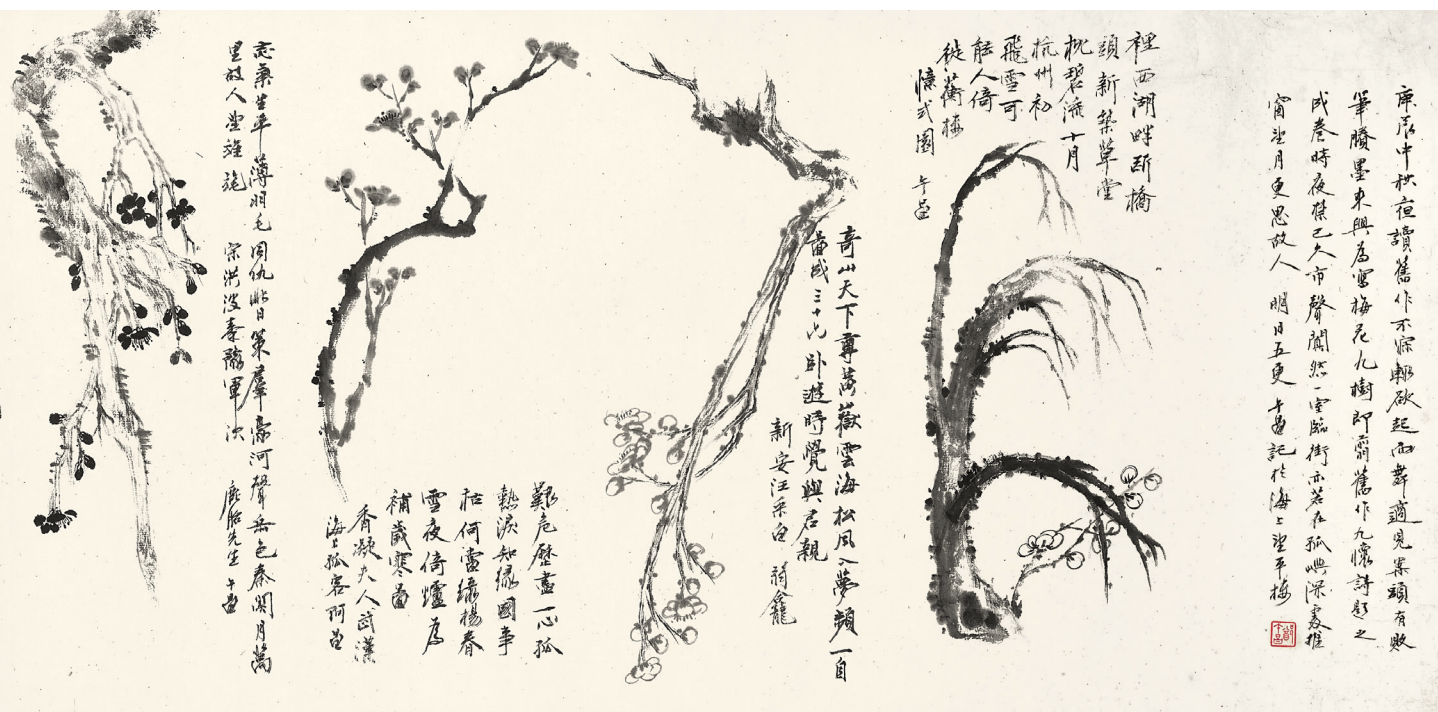 庚辰中秋夜讀舊作不寐輒欲起而舞適見案頭有敗
筆賸墨乘興為寫梅花九樹即翦舊作九懷詩題之
成卷時夜禁已久市聲闃然一室臨街亦若在孤嶼深處推
窗望月更思故人 明日五更 午昌記於海上望平樓
鄭午昌
裡西湖畔斷橋
頭新築草堂
枕碧流十月
杭州初
飛雪可
能人倚
從蘅樓
憶弍園 午昌
奇此天下尊萬嶽雲海松風入夢頻一自
畫成三十六臥遊時覺與君親
新安汪采白
艱危歷盡一心孤
熱淚知緣國事
枯何當綠楊春
雪夜倚爐為
補歲寒圖
香凝夫人武漢
海上孤客阿昌
生平薄羽毛同仇此日策群豪河聲岳色秦關月萬
里故人望旌旄 宋洪波秦隴軍次 先生 午昌